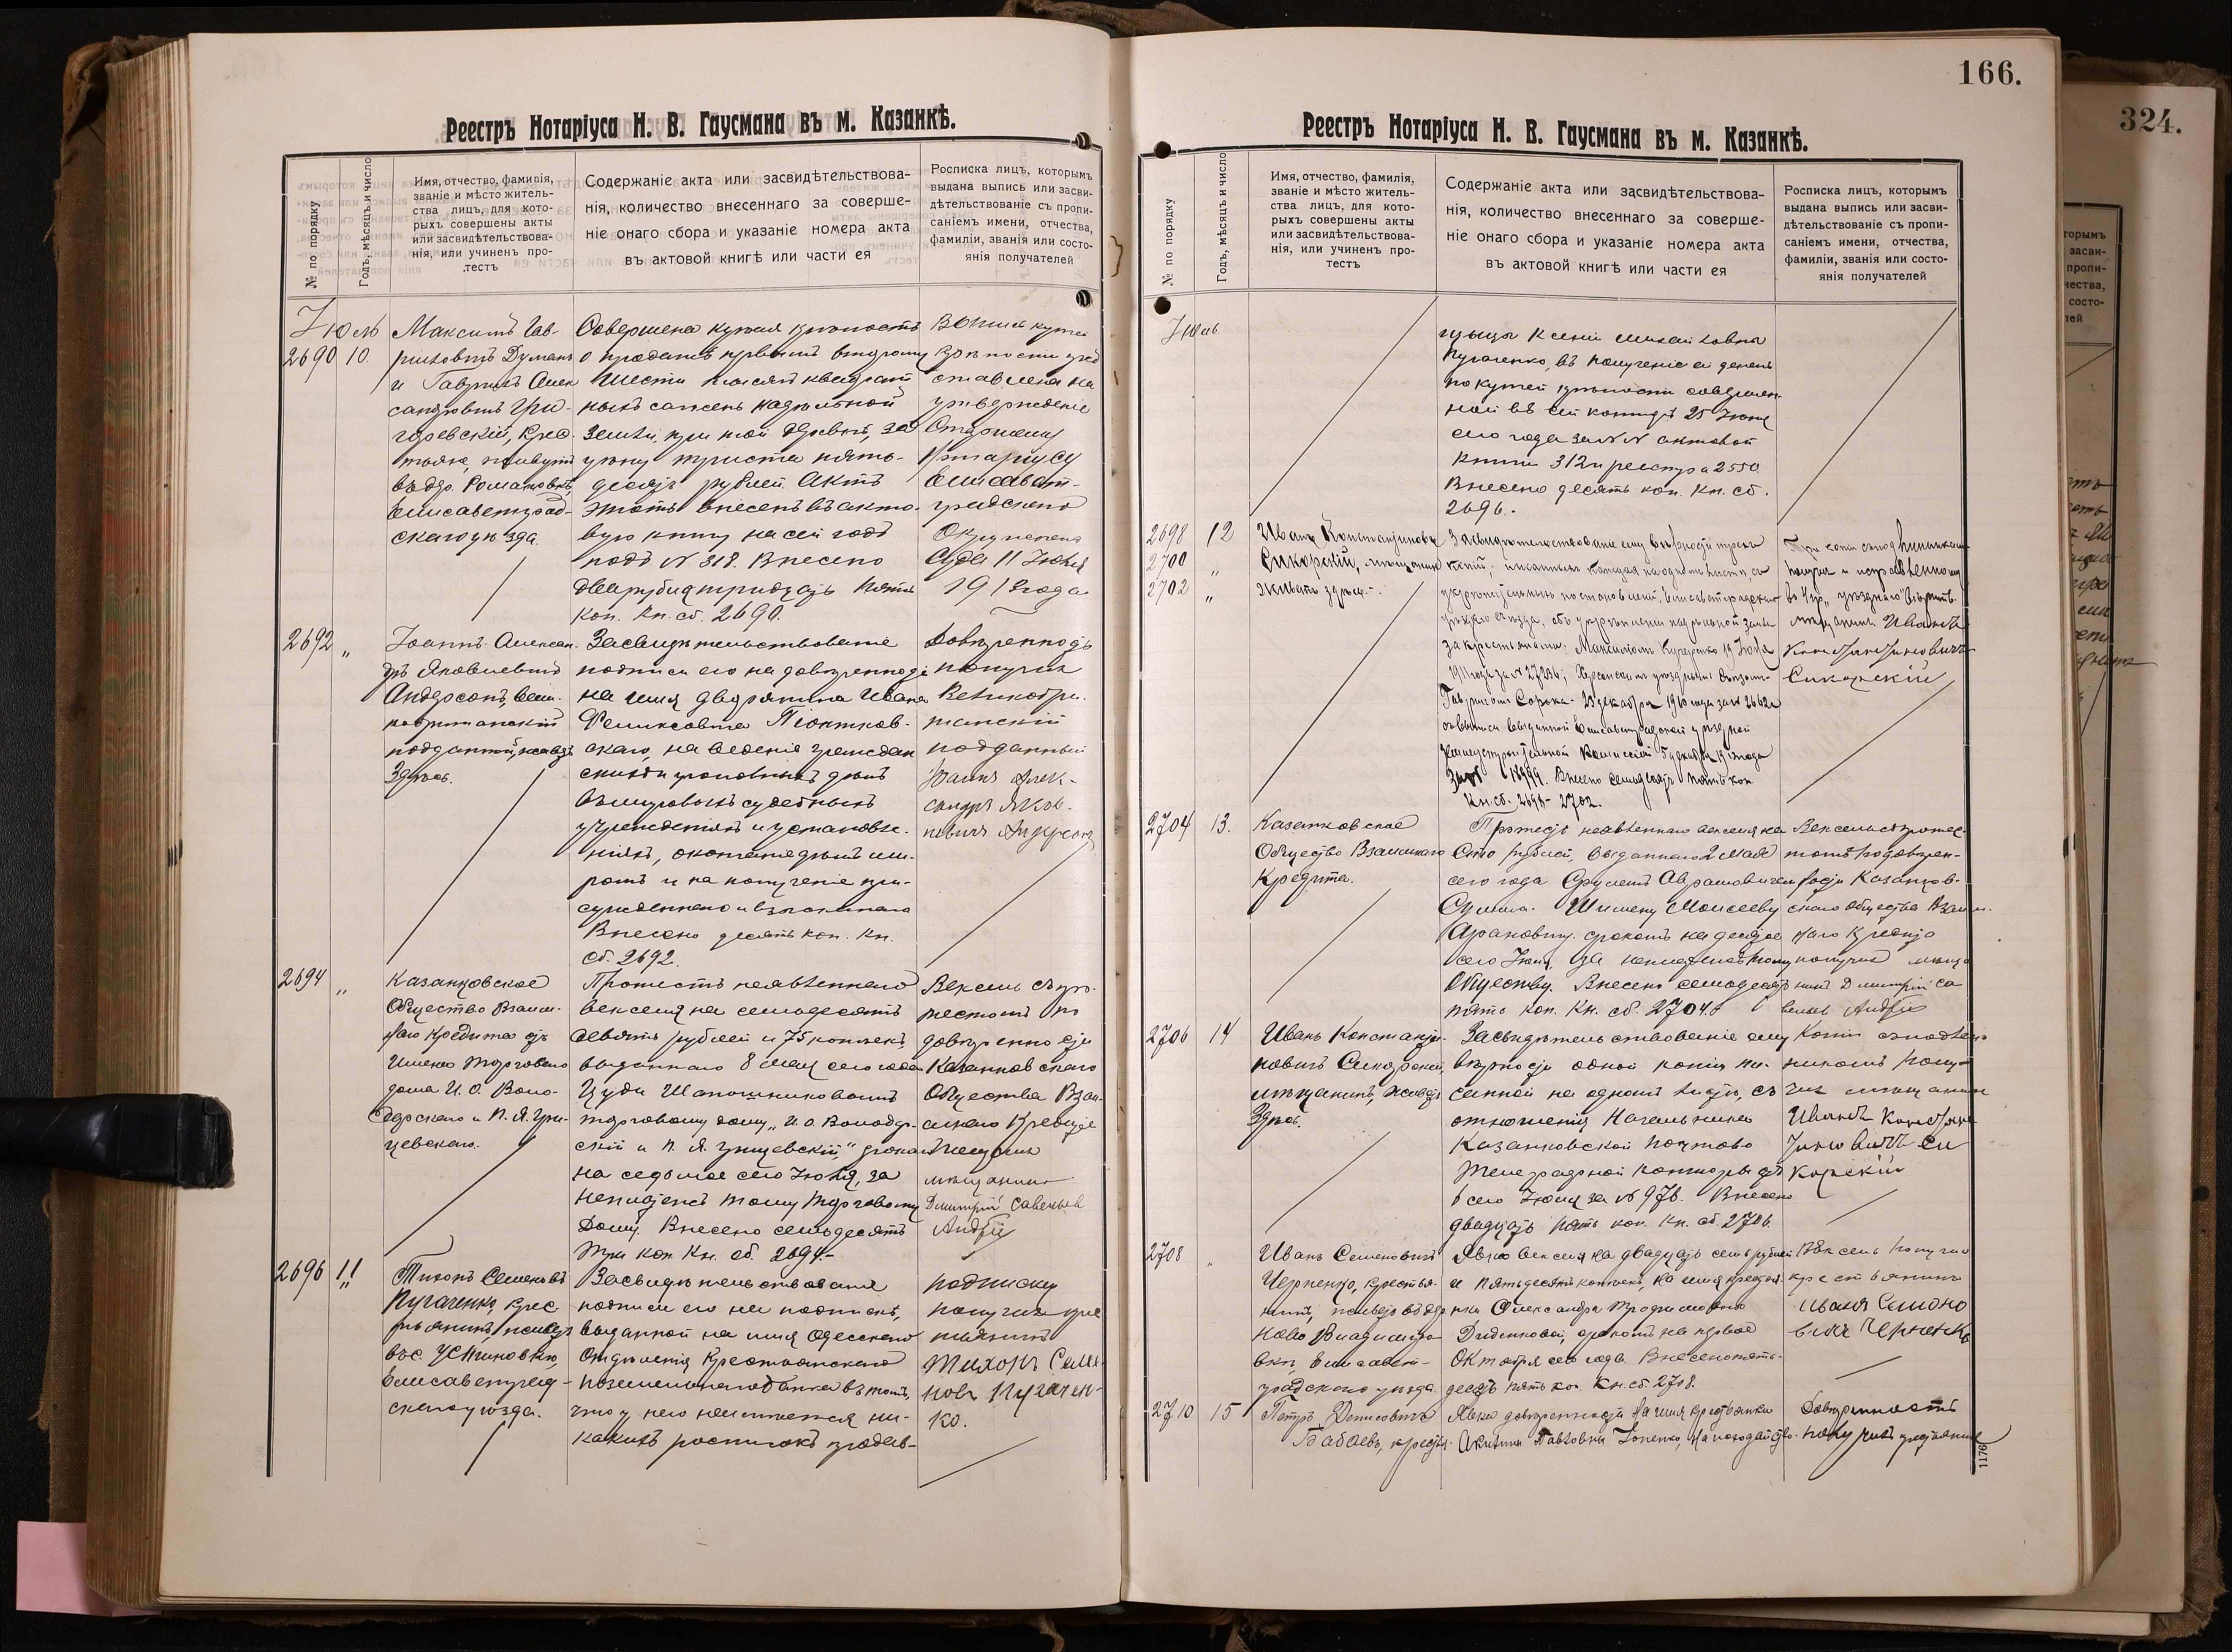 166.
324.
Реестръ Нотаріуса Н. В. Гаусмана въ м. Казанкѣ.
№ по порядку
Годъ, мѣсяцъ и число
Имя, отчество, фамилія,
званіе и мѣсто житель-
ства лицъ, для кото-
рыхъ совершены акты
или засвидѣтельствова-
нія, или учиненъ про-
тестъ
Содержаніе акта или засвидѣтельствова-
нія, количество внесеннаго за соверше-
ніе онаго сбора и указаніе номера акта
въ актовой книгѣ или части ея
Росписка лицъ, которымъ
выдана выпись или засви-
дѣтельствованіе съ пропи-
саніемъ имени, отчества,
фамиліи, званія или состо-
янія получателей
Іюль
2690 10.
Максимъ Гав-
риловичъ Думанъ
и Гавріилъ Алек
сандровичъ Гри-
горевскій, крес-
тьяне, живутъ
въ дер. Романовкѣ,
Елисаветград-
скаго уѣзда.
Совершена купчая крѣпость
о продажѣ первымъ второму
шести тысячъ квадрат
ныхъ сажень надѣльной
земли, при той деревнѣ, за
цѣну триста пять-
десятъ рублей. Актъ
этотъ внесенъ въ акто-
вую книгу на сей годъ
подъ № 318. Внесено
два рубля тридцать пять
коп. Кн. сб. 2690.
Выпись купчей
крѣпости пред
ставлена на
утвержденіе
Старшему
Нотаріусу
Елисавет-
градскаго
Окружнаго
Суда 11 Іюля
1913 года
2692 „
Іоаннъ Алексан-
дръ Яковлевичъ
Андерсонъ, вели-
кобританскій
подданный, живетъ
здѣсь.
Засвидѣтельствованіе
подписи его на довѣренности
на имя дворянина Ивана
Феликсовича Піонтков-
скаго, на веденіе граждан
скихъ и уголовныхъ дѣлъ
въ мировыхъ судебныхъ
учрежденіяхъ и установле-
ніяхъ, окончаніе дѣлъ ми-
ромъ и на полученіе при-
сужденнаго и взысканнаго
Внесено десять коп. Кн.
сб. 2692.
Довѣренность
получилъ
Великобри-
танскій
подданный
Іоаннъ Алек-
сандръ Яков-
левичъ Андерсонъ
2694 „
Казанковское
Общество Взаим-
наго Кредита отъ
имени торговаго
дома И. О. Воло-
дарскаго и П. Я. Гри-
щевскаго.
Протестъ неявленнаго
векселя на семьдесятъ
девять рублей и 75 копѣекъ,
выданнаго 8 мая сего года
Іудой Шапошниковымъ
торговому дому „И. О. Володар-
скій и П. Я. Грищевскій,“ срокомъ
на седьмое сего Іюля, за
неплатежъ тому торговому
дому. Внесено семьдесятъ
три коп. Кн. сб. 2694.-
Вексель съ про-
тестомъ по
довѣренности
Казанковскаго
Общества Вза-
имнаго Кредита
получилъ
мѣщанинъ
Дмитрій Савельевъ
Андрій
2696 11
Тихонъ Семеновъ
Пугаченко, крес-
тьянинъ, живетъ
въ с. Устиновкѣ,
Елисаветград-
скаго уѣзда.
Засвидѣтельствованіе
подписи его на подпискѣ,
выданной на имя Одесскаго
Отдѣленія Крестьянскаго
Поземельнаго Банка въ томъ,
что у него не имѣется ни-
какихъ росписокъ продав-
подписку
получилъ кре
стьянинъ
Тихонъ Семе-
новъ Пугачен-
ко.
Реестръ Нотаріуса Н. В. Гаусмана въ м. Казанкѣ.
№ по порядку
Годъ, мѣсяцъ и число
Имя, отчество, фамилія,
званіе и мѣсто житель-
ства лицъ, для кото-
рыхъ совершены акты
или засвидѣтельствова-
нія, или учиненъ про-
тестъ
Содержаніе акта или засвидѣтельствова-
нія, количество внесеннаго за соверше-
ніе онаго сбора и указаніе номера акта
въ актовой книгѣ или части ея
Росписка лицъ, которымъ
выдана выпись или засви-
дѣтельствованіе съ пропи-
саніемъ имени, отчества,
фамиліи, званія или состо-
янія получателей
Іюль
щицы Ксеніи Михайловны
Пугаченко, въ полученіе ея денегъ
по купчей крѣпости совершен-
ной въ сей конторѣ 25 Іюня
сего года за №№ актовой
книги 312 и реестра 2550.
Внесено десять коп. Кн. сб.
2696.-
2698 12
2700 „
2702 „
Иванъ Константиновъ
Сикорскій, мѣщанинъ
живетъ здѣсь.-
Засвидѣтельствованіе ему вѣрности трехъ
копій, писанныхъ каждая на одномъ листѣ, со
постановленій, Елисаветградскаго
уѣзднаго съѣзда, объ укрѣпленіи надѣльной земли
за крестьянами: Максимомъ 19 Іюля
Гавріиломъ Сорока- 23 декабря 1910 года за № 2662 и
выданной Елисаветградской уѣздной
Землеустроительной Комиссіей 5 декабря
Внесено семьдесятъ пять коп
Кн. сб. 2698-2702.
Три копіи съ подлинниками
получилъ
мѣщанинъ Иванъ
Константиновичъ
Сикорскій
2704 13.
Казанковское
Общество Взаимнаго
Кредита.
Протестъ неявленнаго векселя на
сто рублей, выданнаго 2 мая
сего года Срулемъ Аврамовичемъ
Шимену Моисееву
Арановичу срокомъ на десятое
сего Іюля, за неплатежъ тому
Обществу. Внесено семьдесятъ
пять коп. Кн. сб. 2704.
Вексель съ протес-
томъ по довѣрен-
ности Казанков-
скаго Общества Взаим-
наго Кредита
получилъ мѣща
нинъ Дмитрій Са
вельевъ Андрій
2706 14
Иванъ Константи-
новичъ Сикорскій
мѣщанинъ, живетъ
здѣсь.
Засвидѣтельствованіе ему
вѣрности одной копіи пи-
санной на одномъ листѣ, съ
отношенія Начальника
Казанковской почтово
телеграфной конторы отъ
6 сего Іюля за № 976. Внесено
двадцать пять коп. Кн. сб. 2706.
Копію съ подлин-
никомъ полу-
чилъ мѣщанинъ
Иванъ Констан
тиновичъ Си
корскій
2708 „
Иванъ Семеновичъ
Черненко, крестья-
нинъ, живетъ въ дер
Ново Владиміро
вкѣ, Елисавет-
градскаго уѣзда.
Явка векселя на двадцать семь рублей
и пятьдесятъ копѣекъ, на имя крестьян-
ки Александры Трофимовны
Диденковой, срокомъ на первое
Октября сего года. Внесено пять-
десятъ пять коп. Кн. сб. 2708.
Вексель получилъ
крестьянинъ
Иванъ Семено
вичъ Черненко
2710 15
Петръ Денисовичъ
Бабаевъ, крестья-
Явка довѣренности на имя крестьянки
Акилины Павловны
Довѣренность
получилъ крестьянинъ
1176